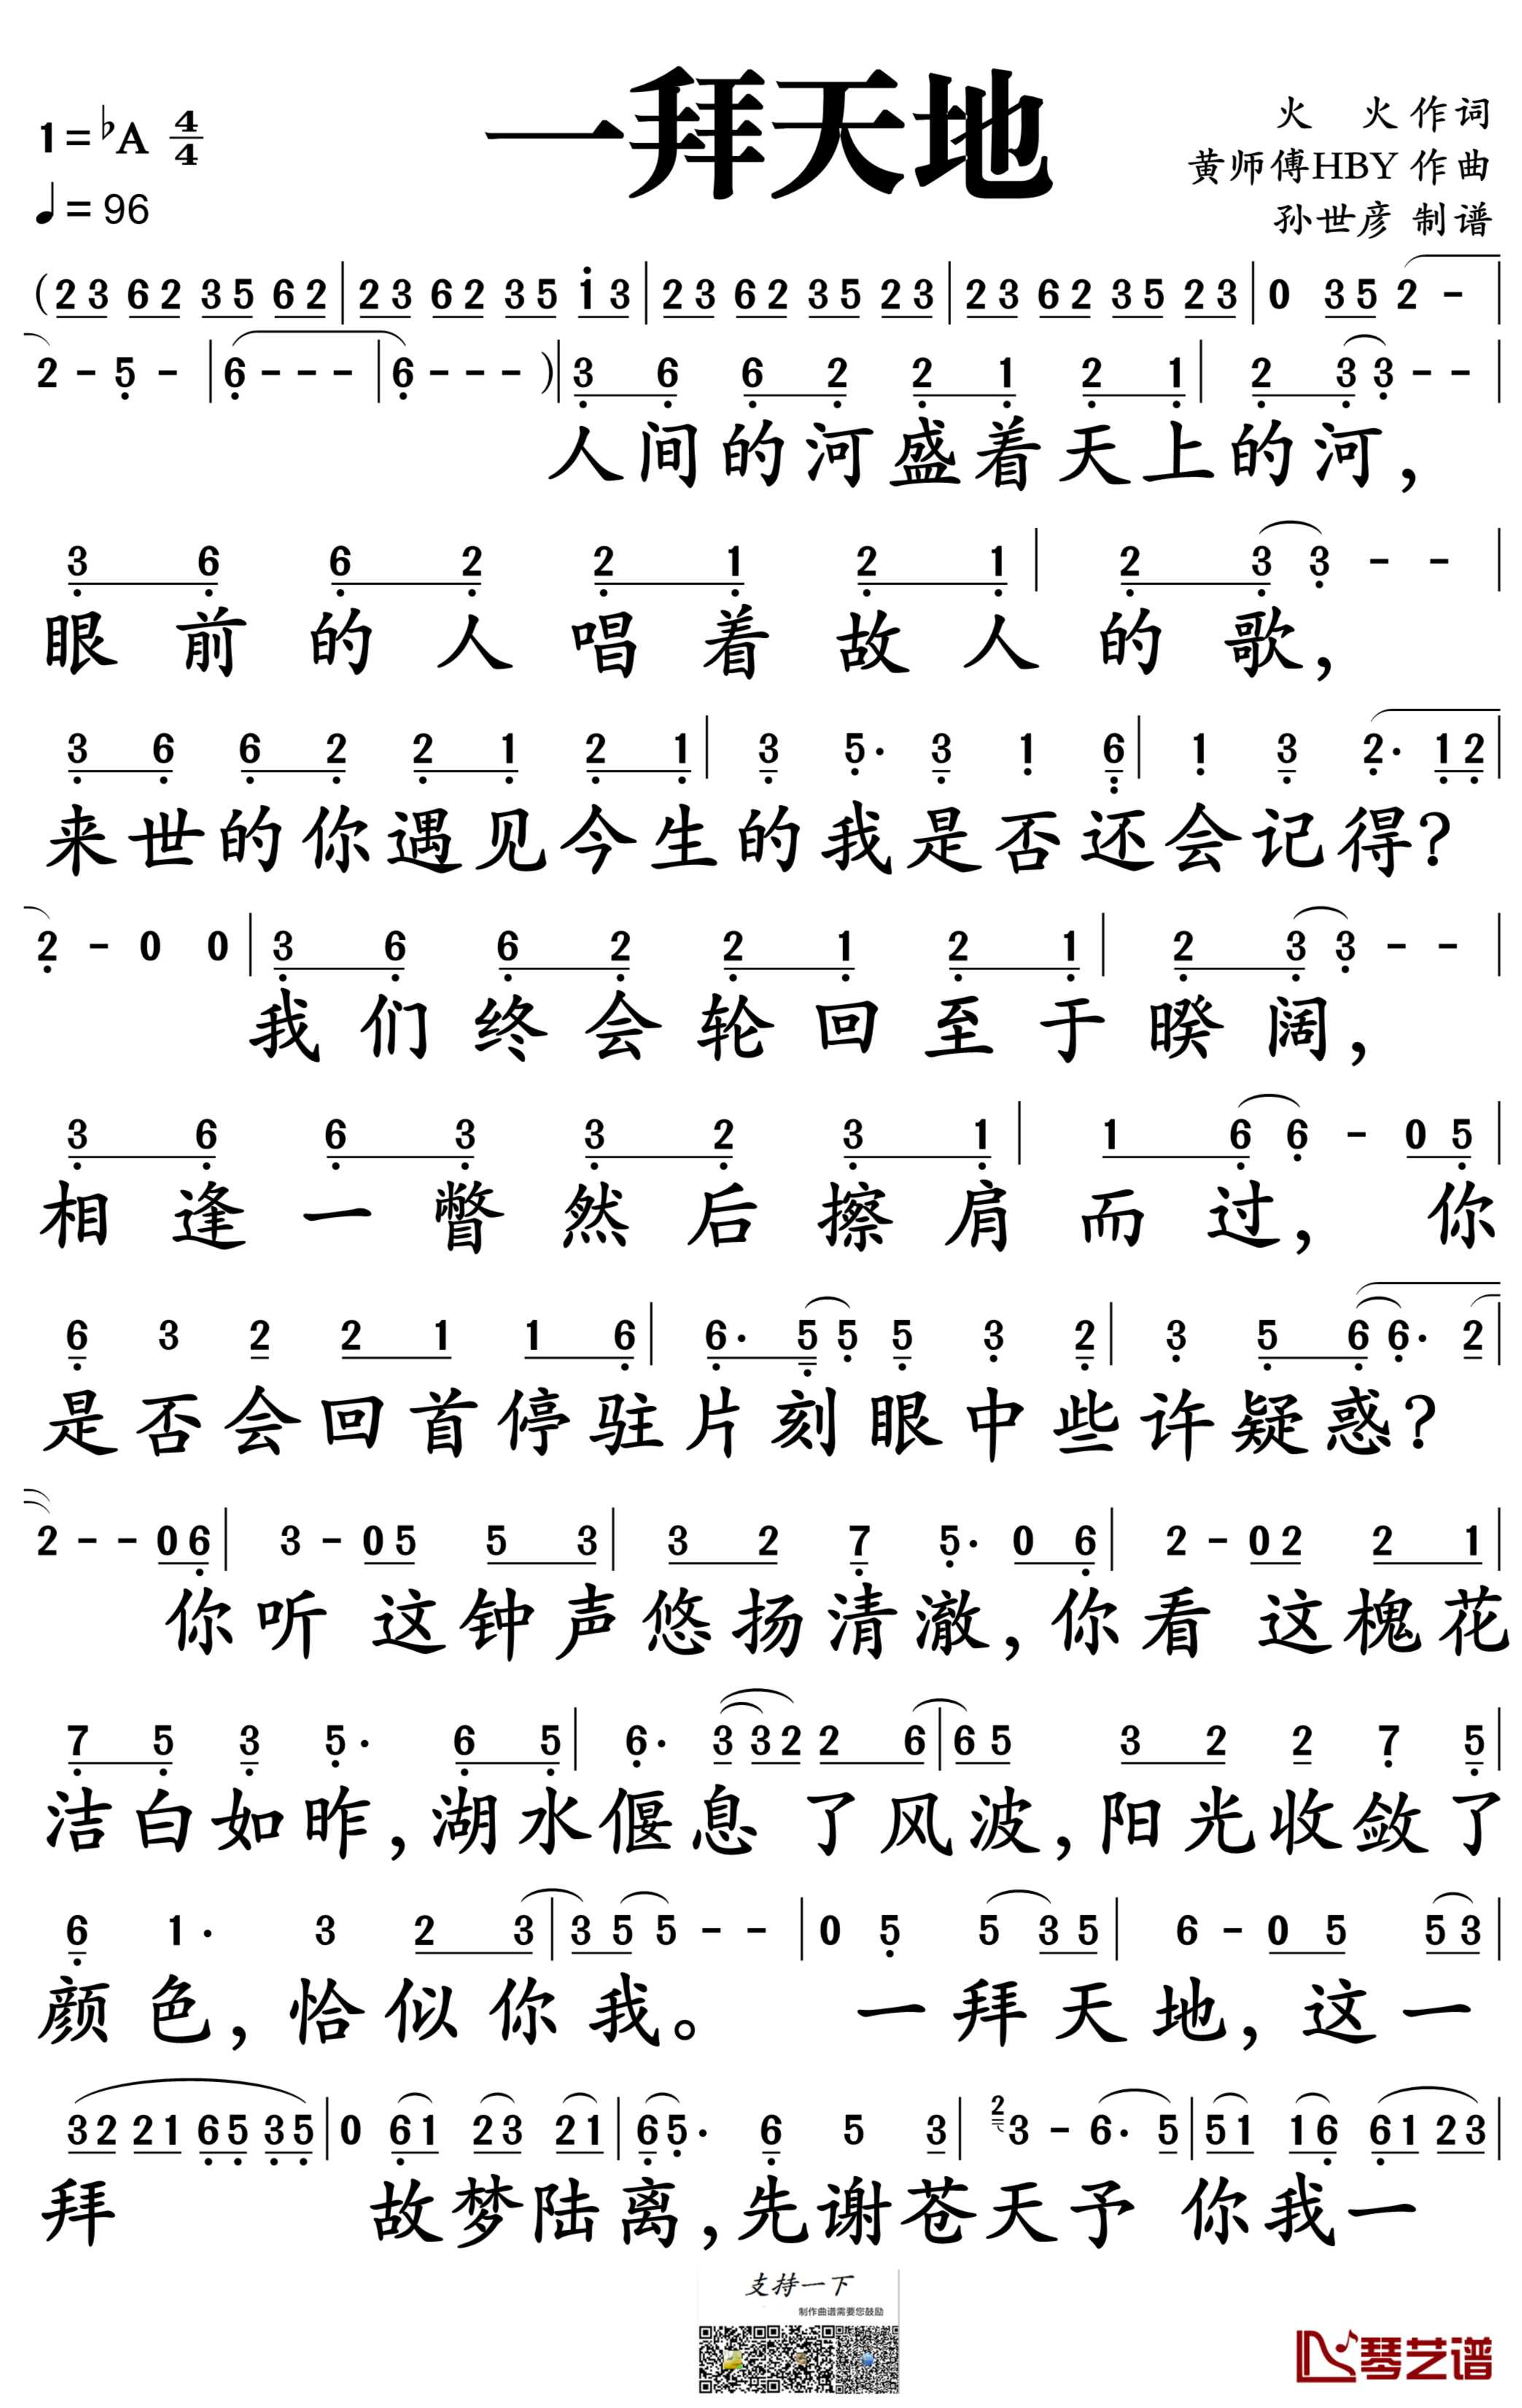 一拜天地
1=♭A 4/4
♩=96
火 火 作词
黄师傅HBY 作曲
孙世彦 制谱
(2 3 6 2 3 5 6 2 | 2 3 6 2 3 5 i 3 | 2 3 6 2 3 5 2 3 | 2 3 6 2 3 5 2 3 | 0 3 5 2 - |
2 - 5 - | 6 - - - | 6 - - - ) | 3 6 6 2 2 1 2 1 | 2 3 3 - - |
人间的河盛着天上的河，
3 6 6 2 2 1 2 1 | 2 3 3 - - |
眼前的人唱着故人的歌，
3 6 6 2 2 1 2 1 | 3 5· 3 1 6 | 1 3 2· 1 2 |
来世的你遇见今生的我是否还会记得？
2 - 0 0 | 3 6 6 2 2 1 2 1 | 2 3 3 - - |
我们终会轮回至于暌阔，
3 6 6 3 3 2 3 1 | 1 6 6 - 0 5 |
相逢一瞥然后擦肩而过，你
6 3 2 2 1 1 6 | 6· 5 5 5 3 2 | 3 5 6 6· 2 |
是否会回首停驻片刻眼中些许疑惑？
2 - - 0 6 | 3 - 0 5 5 3 | 3 2 7 5· 0 6 | 2 - 0 2 2 1 |
你听这钟声悠扬清澈，你看这槐花
7 5 3 5· 6 5 | 6· 3 3 2 2 6 | 6 5 3 2 2 7 5 |
洁白如昨，湖水偃息了风波，阳光收敛了
6 1· 3 2 3 | 3 5 5 - - | 0 5 5 3 5 | 6 - 0 5 5 3 |
颜色，恰似你我。一拜天地，这一
3 2 2 1 6 5 3 5 | 0 6 1 2 3 2 1 | 6 5· 6 5 3 | 2 3 - 6· 5 | 5 1 1 6 6 1 2 3 |
拜故梦陆离，先谢苍天予你我一
支持一下
制作曲谱需要您鼓励
琴艺谱